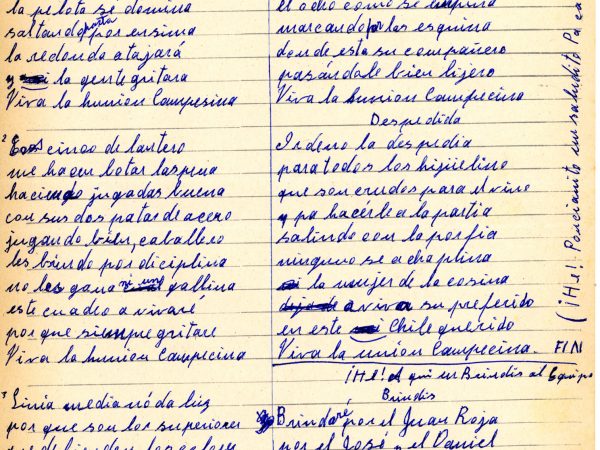 la pelota se domina
saltando pasta por ensima
la redonda atajará
y la gente gritara
Viva la hunion Campesina
2 Esos cinco delantero
me hacen botar laspina
haciendo jugadas buena
con sus dos patas de acero
jugando bien, caballero
les brindo por diciplina
no les gana ni una gallina
este cuadro a vivaré
por que siempre gritare
Viva la hunion Campecina
3 Linia media nó da luz
por que son los superiores
el ocho como se empina
marcando por las esquina
donde esta su compañero
pasándole bien lijero
Viva la hunion Campecina
Despedida
Ordeno la despedia
para todos los hijuelino
que son crudos para el vino
y pa hacérle a la partia
saliendo con la porfia
ninguno se achaplina
la mujer de la cosina
aviva su preferido
en este Chile querido
Viva la unión Campecina. FIN
¡He! A qui un Brindis al Equipo
Brindis
Brindaré por el Juan Roja
por el José y el Daniel
(¡He! Poncianito un saludito Pa ca